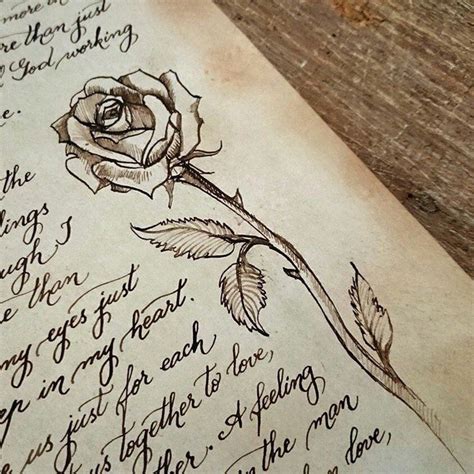 more in
re than just
God working
e.
the
lings
ough I
e than
my eyes just
ep in my heart.
e us just for each
us together to love,
ther. A feeling
in the man
on love,